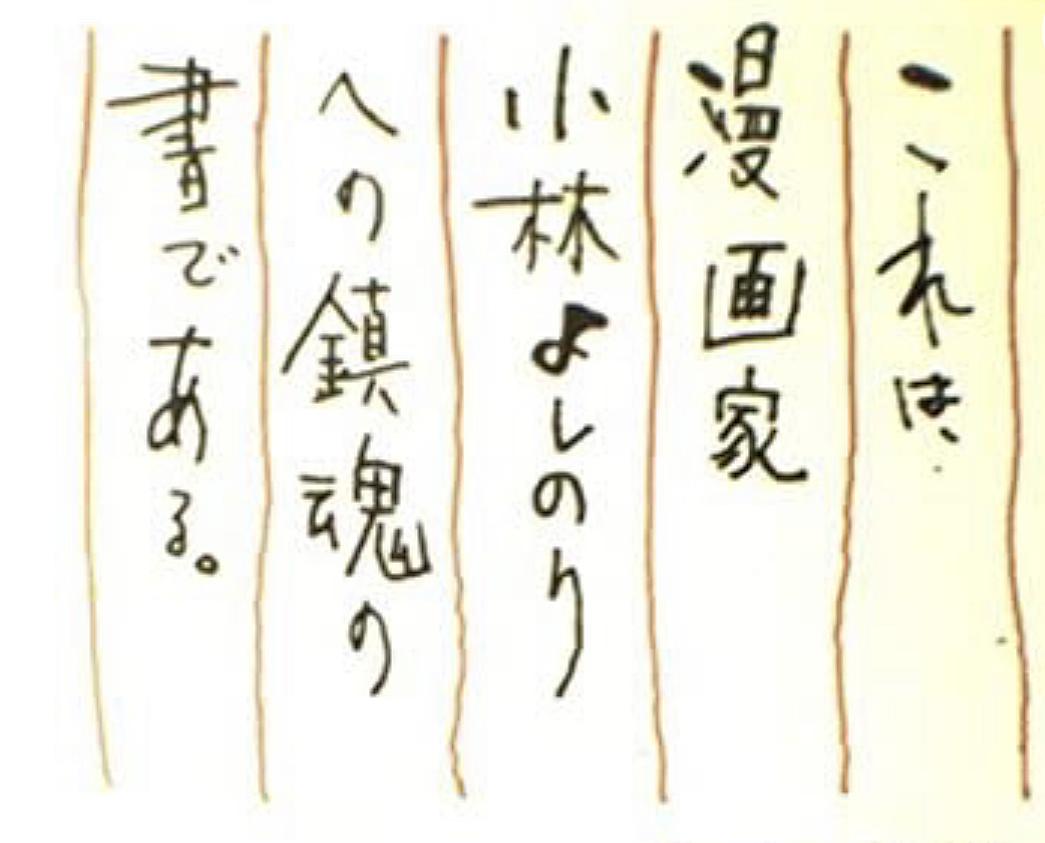 これは、
漫画家
小林よしのり
への鎮魂の
書である。